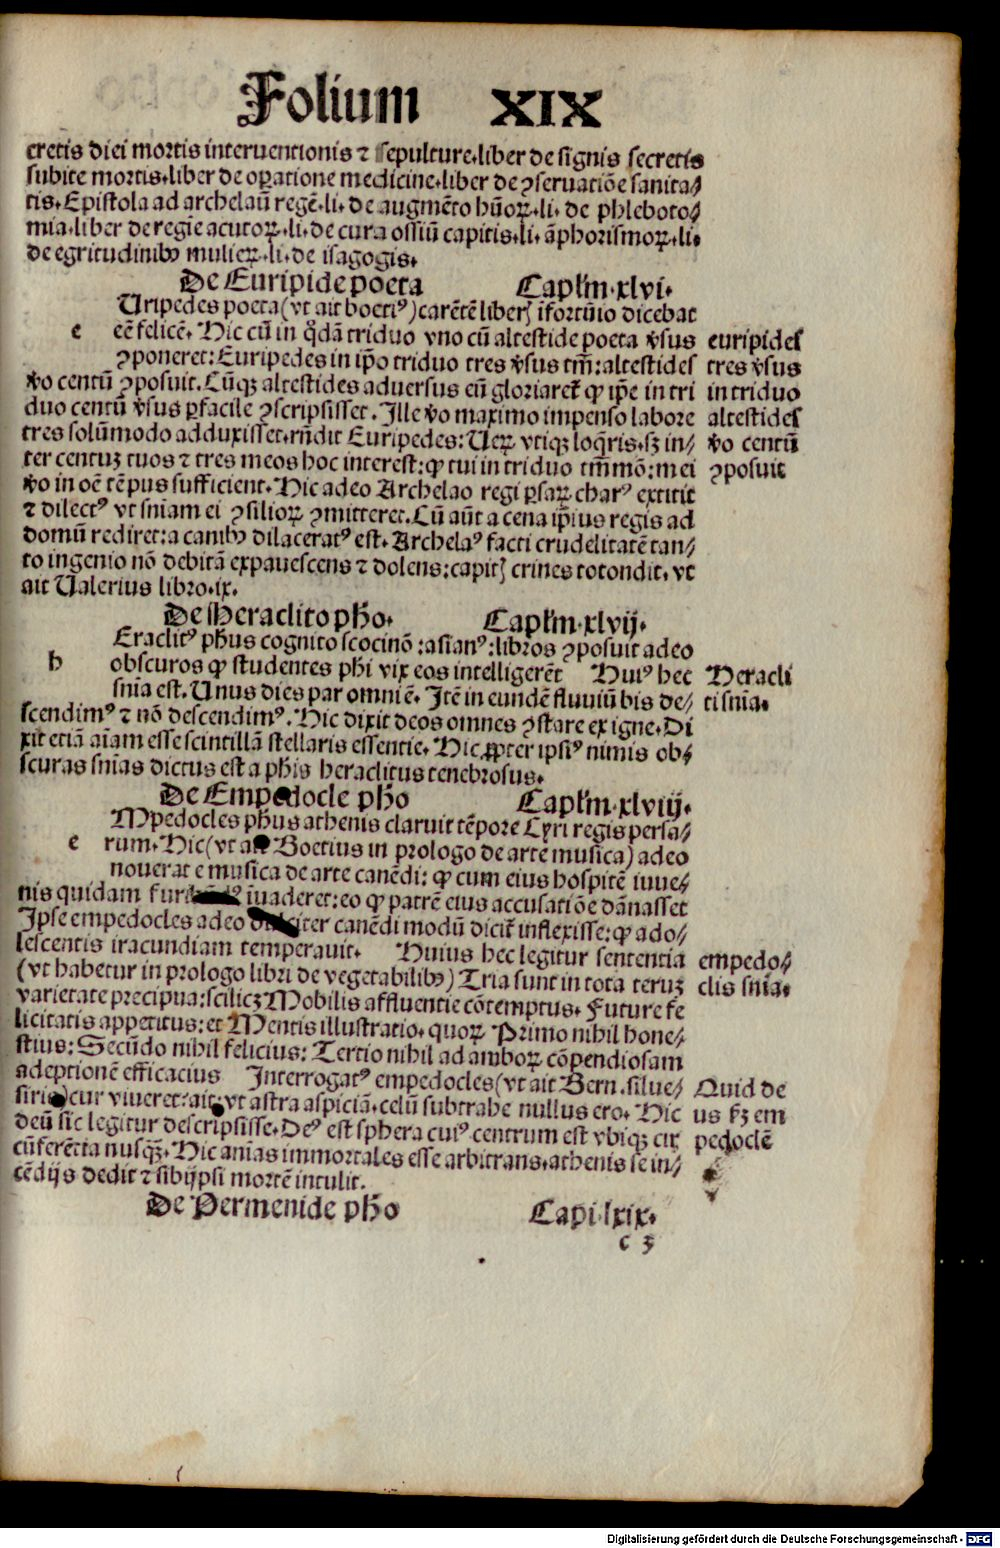 Folium XIX
cretis diei mortis interuentionis ⁊ sepulture.liber de signis secretis
subite mortis.liber de op̲atione medicine.liber de ꝯseruatiōe sanita⸗
tis.Epistola ad archelaū regē.li. de augmēto hūoꝝ.li. de phleboto⸗
mia.liber de regīe acutoꝝ.li.de cura ossiū capitis.li. āphorismoꝝ.li.
de egritudinibꝰ mulieꝝ.li.de isagogis.
De Euripide poeta Capl'm.xlvi.
Uripedes poeta(vt ait boetiꝰ)carētē liberꝭ īfortūio dicebat
e eē felicē. Hic cū in qͦdā triduo vno cū altestide poeta v̾sus euripides
ꝯponeret:Euripedes in ip̄o triduo tres v̾sus tm̄:altestides tres v̾sus
v̾o centū ꝯposuit.Cūqꝫ altestides aduersus eū gloriaret̃ ꝙ ip̄e in tri in triduo
duo centū v̾sus ꝑfacile ꝯscripsisset. Ille v̾o maximo impenso labore altestides
tres solūmodo adduxisset.rn̄dit Euripedes:Ueꝝ vtiqꝫ loq̄ris.sꝫ in⸗ v̾o centū
ter centuꝫ tuos ⁊ tres meos hoc interest:ꝙ tui in triduo tm̄mō:mei ꝯposuit
v̾o in oē tēpus sufficient.Hic adeo Archelao regi ꝑsaꝝ charꝰ extitit
⁊ dilectꝰ vt sniam ei ꝯsilioꝝ ꝯmitteret.Cū aūt a cena ip̄ius regis ad
domū rediret:a canibꝰ dilaceratꝰ est.Archelaꝰ facti crudelitatē tan⸗
to ingenio nō debitā expauescens ⁊ dolens:capitꝭ crines totondit.vt
ait Ualerius libro.ix.
De Heraclito ph̄o. Capl'm.xlvij.
Eraclitꝰ ph̄us cognito scocinō:asianꝰ:libros ꝯposuit adeo
h obscuros ꝙ studentes ph̄i vix eos intelligerēt Huiꝰ hec Heracli
sn̄ia est.Unus dies par omni ē. Itē in eundē fluuiū bis de⸗ ti sn̄ia.
scendimꝰ ⁊ nō descendimꝰ.Hic dixit deos omnes ꝯstare ex igne.Di
xit etiā aīam esse scintillā stellaris essentie.Hic ꝓpter ipsiꝰ nimis ob⸗
scuras sn̄ias dictus est a ph̄is heraclitus tenebrosus.
De Empedocle ph̄o Capl'm.xlviij.
Mpedocles ph̄us athenis claruit tēpore Cyri regis persa⸗
e rum.Hic(vt ait Boetius in prologo de arte musica)adeo
nouerat e musica de arte canēdi:ꝙ cum eius hospitē iuue⸗
nis quidam īuaderet:eo ꝙ patrē eius accusatiōe dānasset
Ipse empedocles adeo dulciter canēdi modū dicit̃ inflexisse:ꝙ ado⸗
lescentis iracundiam temperauit. Huius hec legitur sententia empedo⸗
(vt habetur in prologo libri de vegetabilibꝰ)Tria sunt in tota teruꝫ clis sn̄ia.
varietate precipua:scilicꝫ Mobilis affluentie cōtemptus. Future fe
licitatis appetitus:et Mentis illustratio.quoꝝ Primo nihil hone⸗
stius:Secūdo nihil felicius:Tertio nihil ad amboꝝ cōpendiosam
adeptionē efficacius Interrogatꝰ empedocles(vt ait Bern.silue⸗ Quid de
stris)cur viueret:ait:vt astra aspiciā.celū subtrahe nullus ero. Hic us ẜꝫ em
deū sic legitur descripsisse.Deꝰ est sphera cuiꝰ centrum est vbiqꝫ cir pedoclē
cūferētia nusqꝫ̄.Hic anīas immortales esse arbitrans.athenis se in⸗
cēdijs dedit ⁊ sibijpsi mortē intulit.
De Permenide ph̄o Capi.lxix.
c 3
Digitalisierung gefördert durch die Deutsche Forschungsgemeinschaft - DFG